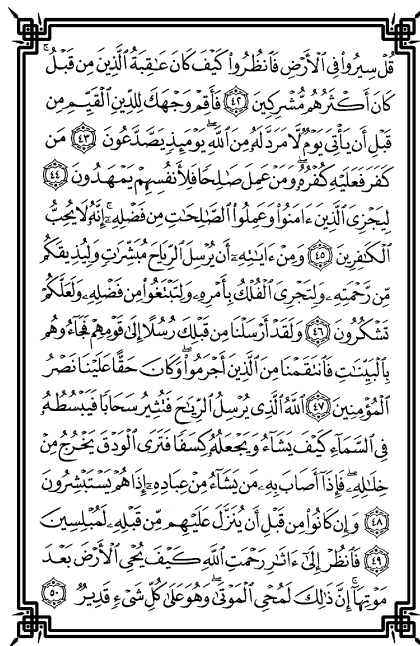 قُلْ سِيرُوا۟ فِى ٱلْأَرْضِ فَٱنظُرُوا۟ كَيْفَ كَانَ عَٰقِبَةُ ٱلَّذِينَ مِن قَبْلُ ۚ
كَانَ أَكْثَرُهُم مُّشْرِكِينَ ﴿٤٢﴾ فَأَقِمْ وَجْهَكَ لِلدِّينِ ٱلْقَيِّمِ مِن
قَبْلِ أَن يَأْتِىَ يَوْمٌ لَّا مَرَدَّ لَهُۥ مِنَ ٱللَّهِ ۖ يَوْمَئِذٍ يَصَّدَّعُونَ ﴿٤٣﴾ مَن
كَفَرَ فَعَلَيْهِ كُفْرُهُۥ ۖ وَمَنْ عَمِلَ صَٰلِحًا فَلِأَنفُسِهِمْ يَمْهَدُونَ ﴿٤٤﴾
لِيَجْزِىَ ٱلَّذِينَ ءَامَنُوا۟ وَعَمِلُوا۟ ٱلصَّٰلِحَٰتِ مِن فَضْلِهِۦٓ ۚ إِنَّهُۥ لَا يُحِبُّ
ٱلْكَٰفِرِينَ ﴿٤٥﴾ وَمِنْ ءَايَٰتِهِۦٓ أَن يُرْسِلَ ٱلرِّيَاحَ مُبَشِّرَٰتٍ وَلِيُذِيقَكُم
مِّن رَّحْمَتِهِۦ وَلِتَجْرِىَ ٱلْفُلْكُ بِأَمْرِهِۦ وَلِتَبْتَغُوا۟ مِن فَضْلِهِۦ وَلَعَلَّكُمْ
تَشْكُرُونَ ﴿٤٦﴾ وَلَقَدْ أَرْسَلْنَا مِن قَبْلِكَ رُسُلًا إِلَىٰ قَوْمِهِمْ فَجَآءُوهُم
بِٱلْبَيِّنَٰتِ فَٱنتَقَمْنَا مِنَ ٱلَّذِينَ أَجْرَمُوا۟ ۖ وَكَانَ حَقًّا عَلَيْنَا نَصْرُ
ٱلْمُؤْمِنِينَ ﴿٤٧﴾ ٱللَّهُ ٱلَّذِى يُرْسِلُ ٱلرِّيَٰحَ فَتُثِيرُ سَحَابًا فَيَبْسُطُهُۥ
فِى ٱلسَّمَآءِ كَيْفَ يَشَآءُ وَيَجْعَلُهُۥ كِسَفًا فَتَرَى ٱلْوَدْقَ يَخْرُجُ مِنْ
خِلَٰلِهِۦ ۖ فَإِذَآ أَصَابَ بِهِۦ مَن يَشَآءُ مِنْ عِبَادِهِۦٓ إِذَا هُمْ يَسْتَبْشِرُونَ
﴿٤٨﴾ وَإِن كَانُوا۟ مِن قَبْلِ أَن يُنَزَّلَ عَلَيْهِم مِّن قَبْلِهِۦ لَمُبْلِسِينَ
﴿٤٩﴾ فَٱنظُرْ إِلَىٰٓ ءَاثَٰرِ رَحْمَتِ ٱللَّهِ كَيْفَ يُحْىِ ٱلْأَرْضَ بَعْدَ
مَوْتِهَآ ۚ إِنَّ ذَٰلِكَ لَمُحْىِ ٱلْمَوْتَىٰ ۖ وَهُوَ عَلَىٰ كُلِّ شَىْءٍ قَدِيرٌ ﴿٥٠﴾